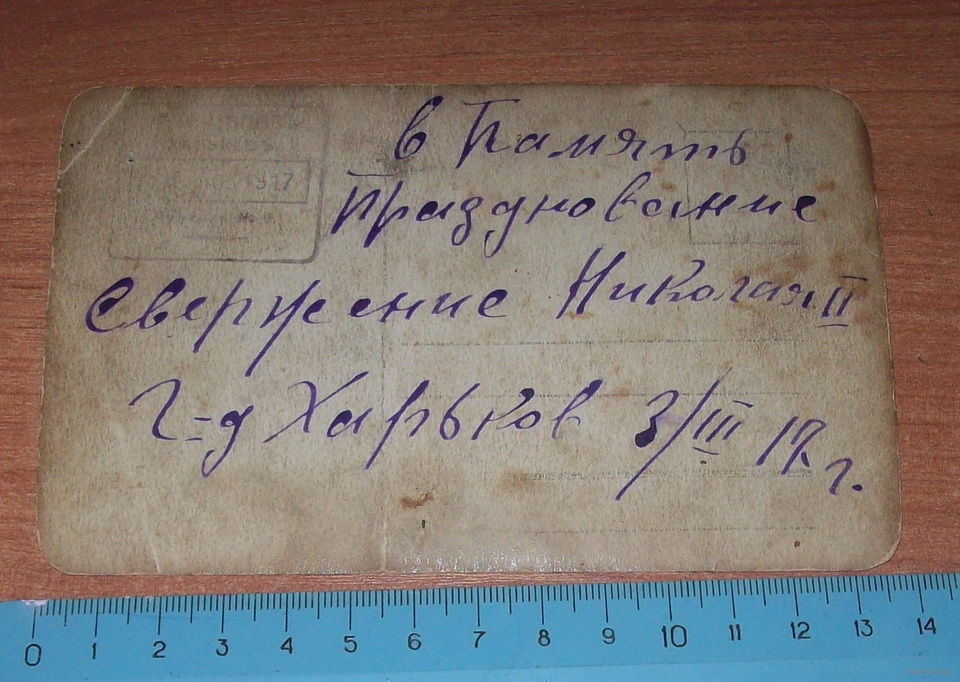 в Память
Празднование
Свержение Николая II
Г-д Харьков 3/III 17 г.
0 1 2 3 4 5 6 7 8 9 10 11 12 13 14